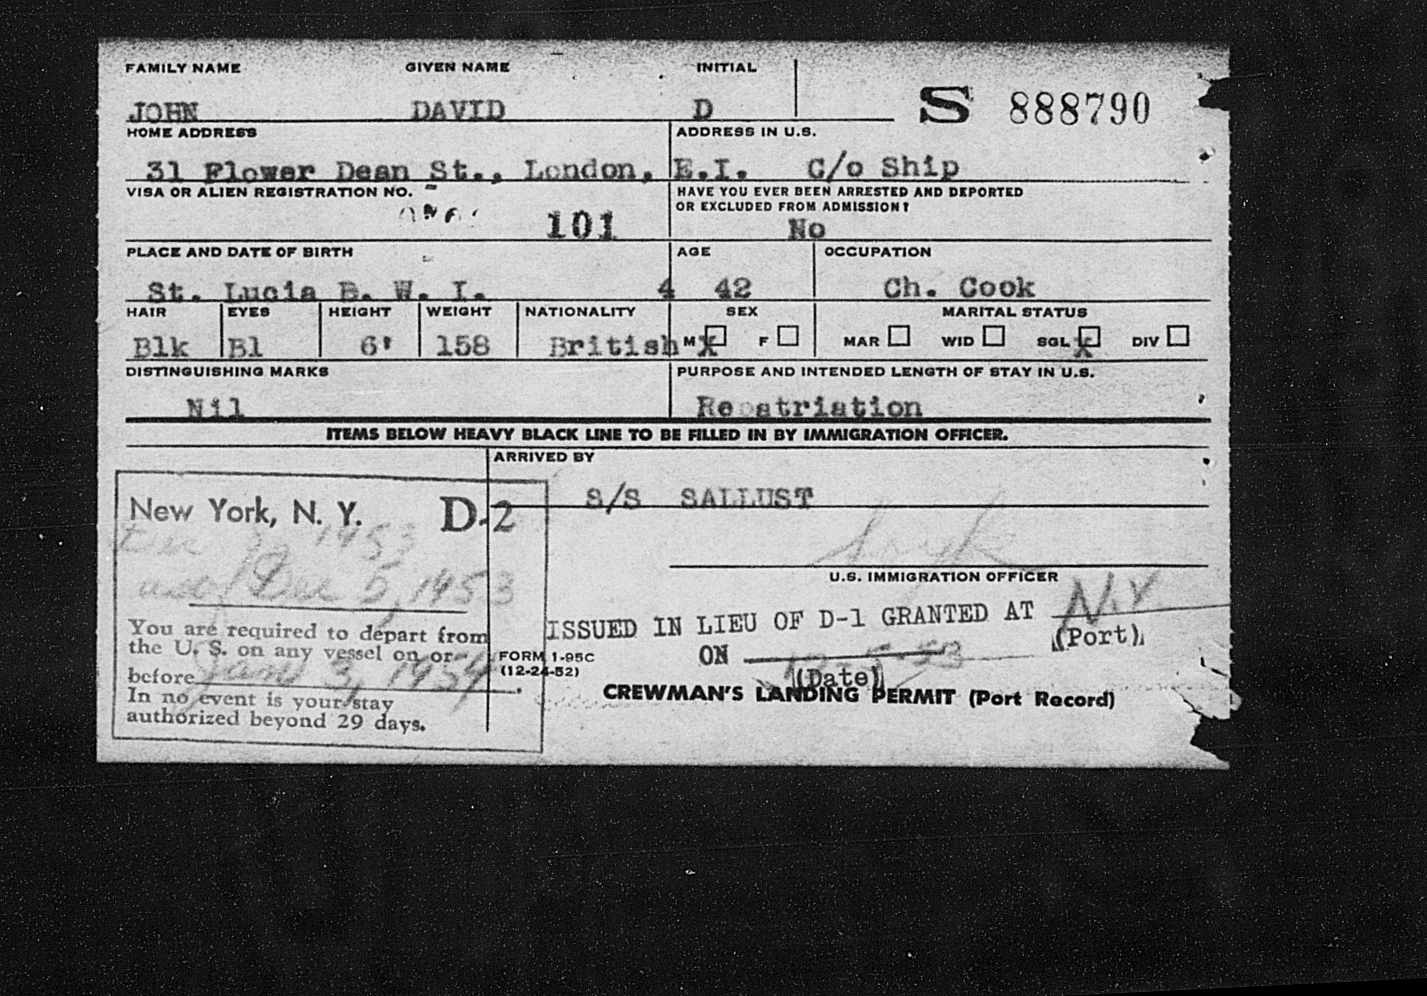 FAMILY NAME GIVEN NAME INITIAL
JOHN DAVID D S 888790
HOME ADDRESS ADDRESS IN U.S.
31 Flower Dean St., London, E.I. C/o Ship
VISA OR ALIEN REGISTRATION NO. HAVE YOU EVER BEEN ARRESTED AND DEPORTED
OR EXCLUDED FROM ADMISSION?
101 No
PLACE AND DATE OF BIRTH AGE OCCUPATION
St. Lucia B. W. I. 4 42 Ch. Cook
HAIR EYES HEIGHT WEIGHT NATIONALITY SEX MARITAL STATUS
Blk Bl 6' 158 British M X F MAR WID SGL X DIV
DISTINGUISHING MARKS PURPOSE AND INTENDED LENGTH OF STAY IN U.S.
Nil Repatriation
ITEMS BELOW HEAVY BLACK LINE TO BE FILLED IN BY IMMIGRATION OFFICER.
ARRIVED BY
S/S SALLUST
New York, N. Y. D-2
Dec 1953
Dec 5, 1953
U.S. IMMIGRATION OFFICER
You are required to depart from
the U. S. on any vessel on or
before Jan 3, 1954
In no event is your stay
authorized beyond 29 days.
ISSUED IN LIEU OF D-1 GRANTED AT N.Y
(Port)
ON 12-5-53
(Date)
FORM I-95C
(12-24-52)
CREWMAN'S LANDING PERMIT (Port Record)